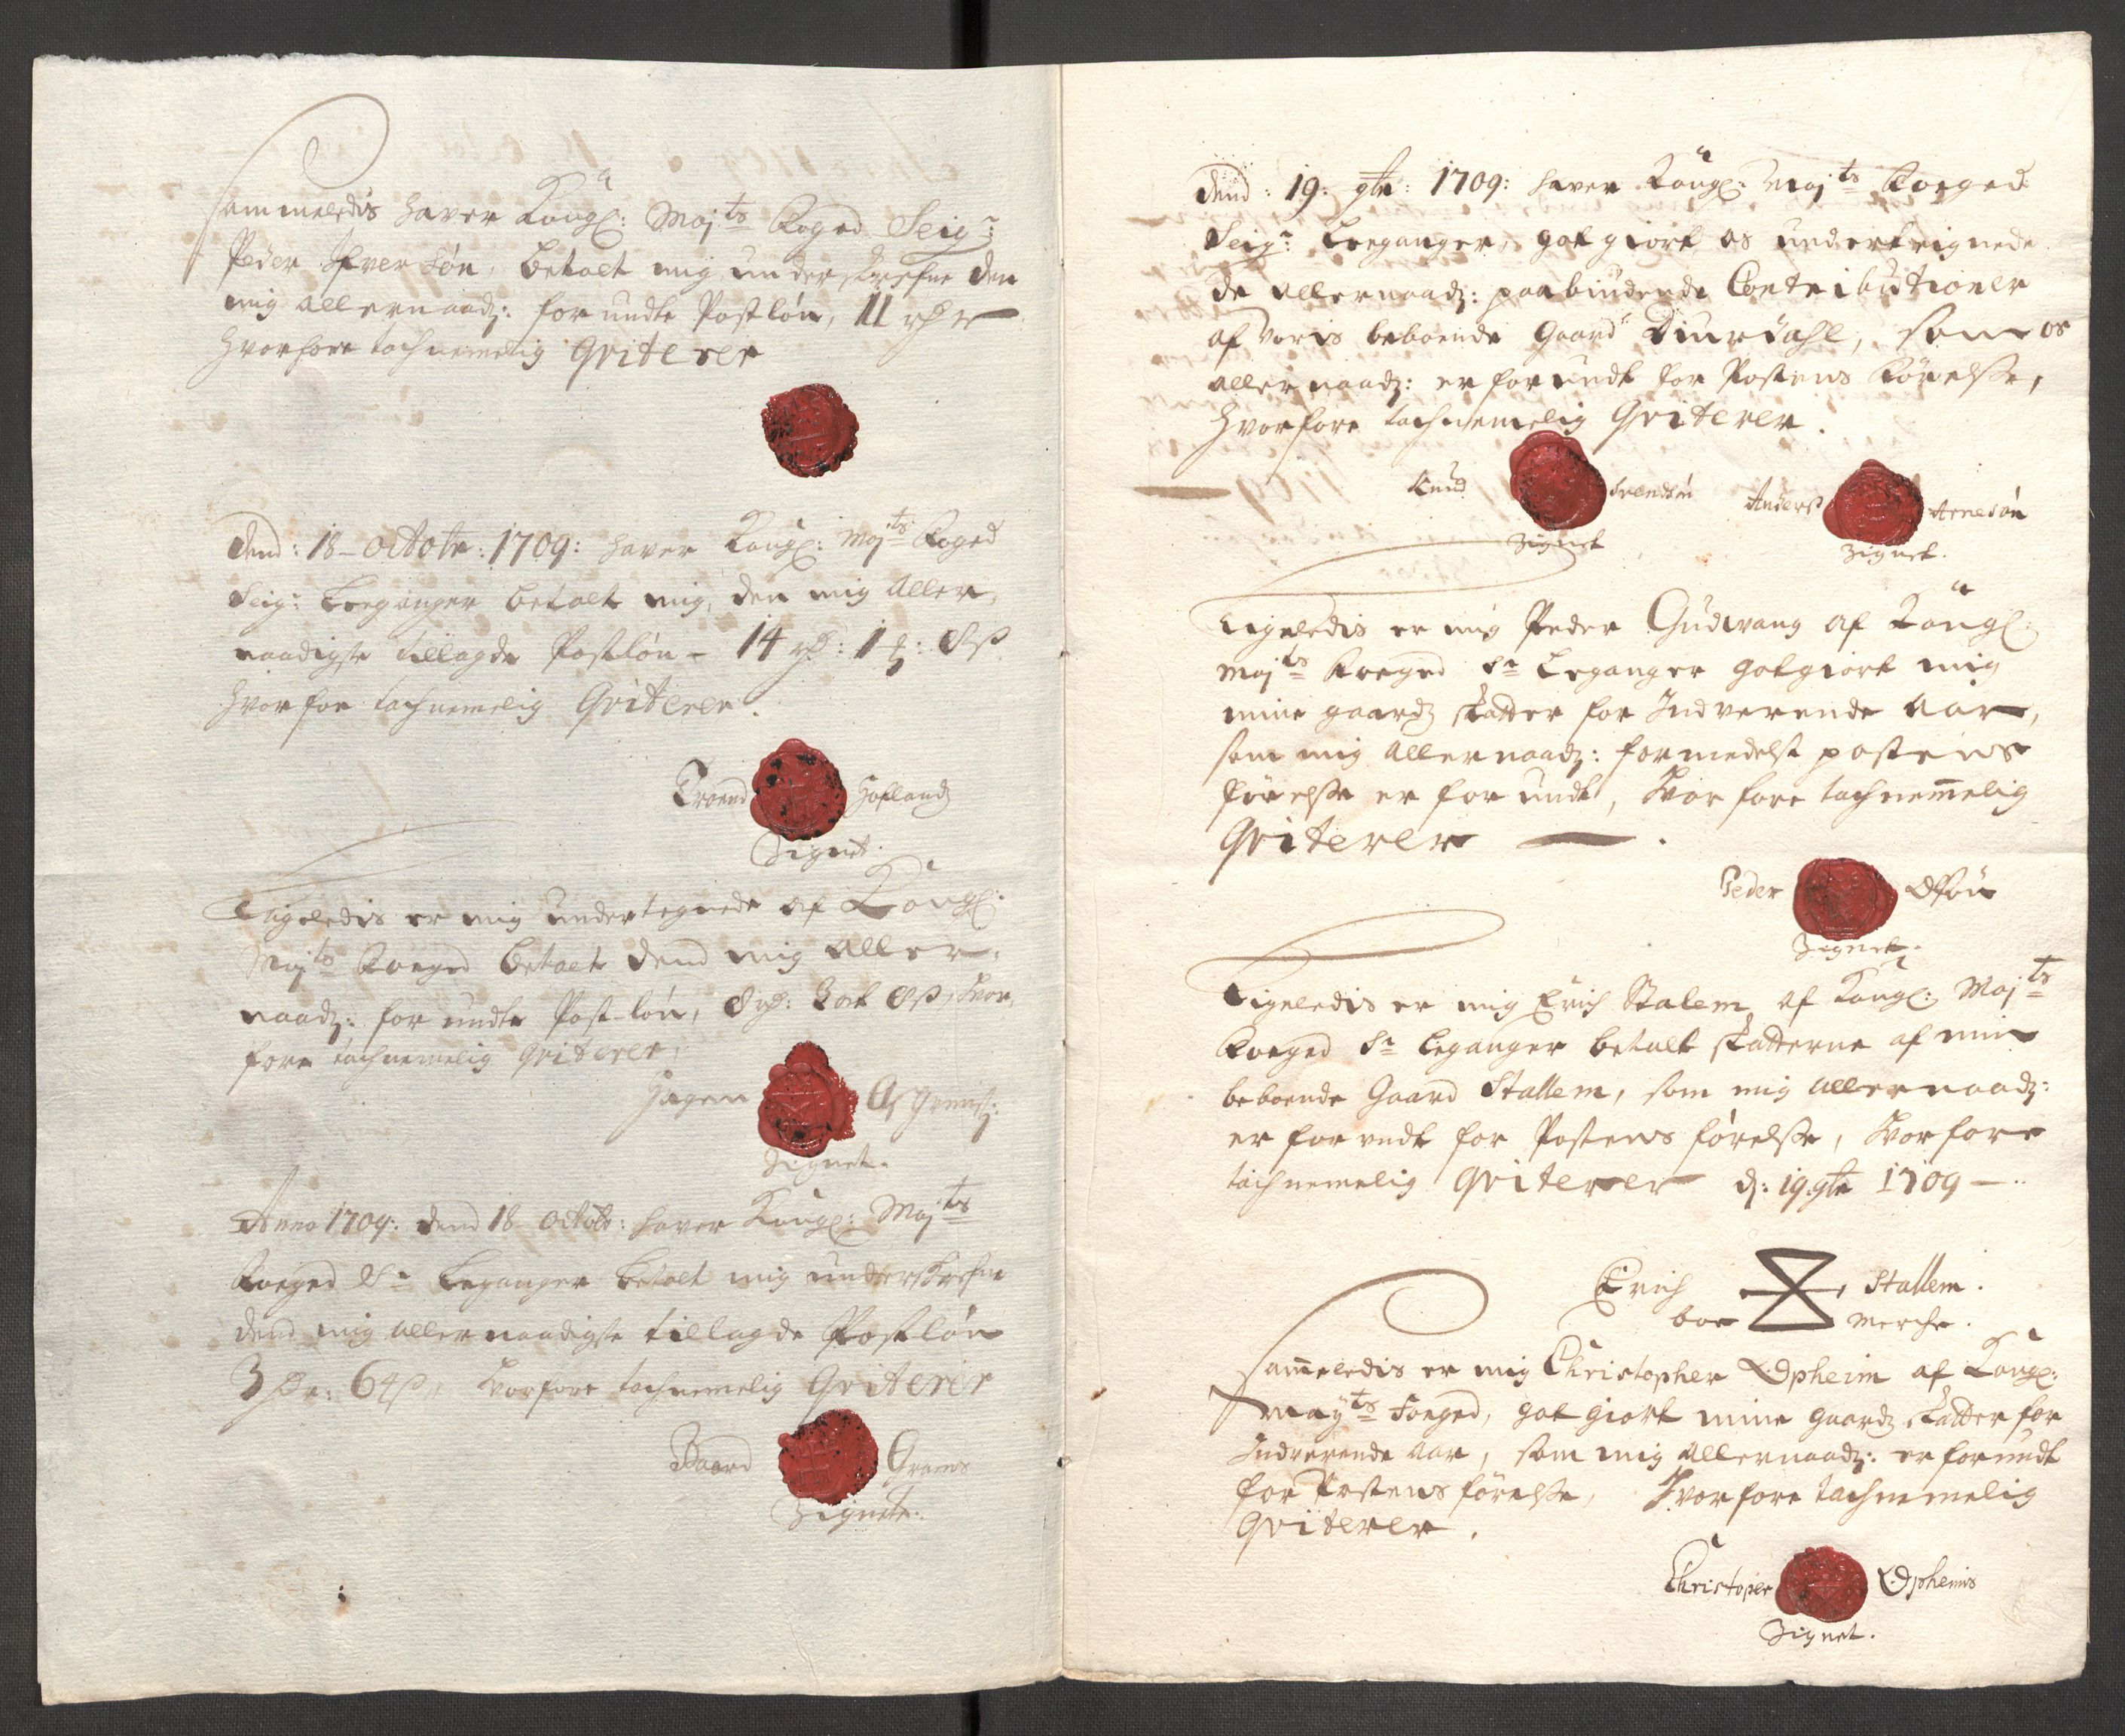 Sammeledis haver Kongl: Maj:ts Foged Seig:r
Peder Ifversøn, betalt mig underskrefne den
mig allernaadg: forundte Postløn, 11 rdr
hvorfore tachnemelig Qviterer
Dend: 18 Octobr: 1709: haver Kongl: Maj:ts Foged
Seig:r Leeganger betalt mig, den mig aller,
naadigste tillagde Postløn - 14 rd: 1 : 8 s
hvorfor tachnemelig Qviterer.
Troend Hofland
Zignet.
Ligeledis er mig undertegnede af Kongl:
Maj:ts Foeged betalt dend mig aller,
naadg: forundte Post-løn, 8 rd: 3 ort 8 s, hvor,
fore tachnemelig Qviterer,
Hagen
Zignet.
Anno 1709: dend 18 Octobr: haver Kongl: Maj:ts
Foeged S:r Leganger betalt mig underskrefne
dend mig allernaadigste tillagde Postløn
3 rdr: 64 s, hvorfore tachnemelig Qviterer
Baard Grams
Zignete.
Dend: 19: 9br: 1709: haver Kongl: Maj:ts Foeged
Seig:r Leeganger, got giort os underteignede
de allernaadg: paabindende Contributioner
af voris beboende gaard , som os
allernaadg: er forundt for Postens Førelsse,
hvorfore tachnemelig Qviterer.
Knud Svendsøn Anders Arnesøn
Zignet Zignet.
Ligeledis er mig Peder Gudvang af Kongl:
Maj:ts Foeged S:r Leganger gotgiort mig
mine gaardz skatter for Indverende Aar,
som mig allernaadg: formedelst postens
førelsse er forundt, hvorfore tachnemelig
Qviterer
Peder Olsøn
Zignet.
Ligeledis er mig Erich Stalem af Kongl: Maj:ts
Foeged S:r Leganger betalt skatterne af min
beboende Gaard Stallem, som mig allernaadg:
er forundt for Postens førelsse, hvorfore
tachnemelig Qviterer d: 19. 9br 1709
Erich Stallem.
boe merche.
Sammeledis er mig Christopher Opheim af Kongl:
May:ts foeged, got giort mine gaardz skatter for
Indverende Aar, som mig allernaadg: er forundt
for Postens førelsse, hvorfore tachnemelig
Qviterer.
Christoper Opheims
Zignet.